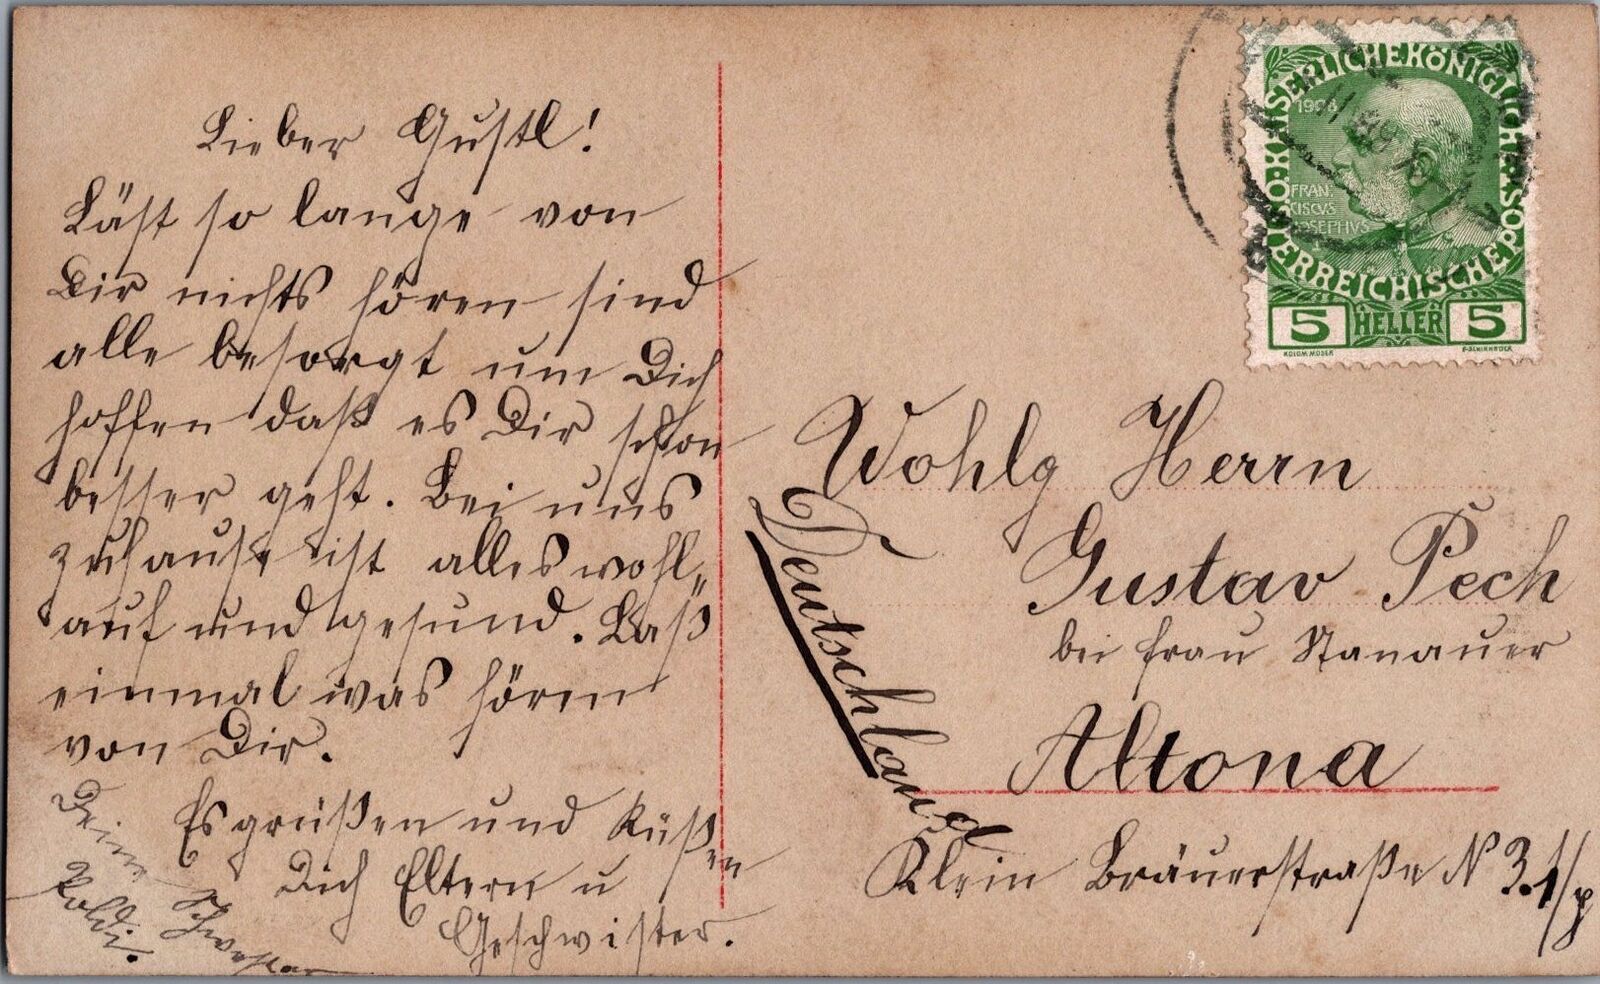 Lieber Gustl!
Läst so lange von
Dir nichts hören sind
alle besorgt um Dich
hoffen daß es Dir schon
besser geht. Bei uns
zuhause ist alles wohl„
auf und gesund. Laß
einmal was hören
von Dir.
Es grüßen und küßen
Dich Eltern u
Geschwister.
Deine Schwester
Poldi.
KAISERLICHE KÖNIGLICHE ÖSTERREICHISCHE POST
1908
FRAN
CISCVS
IOSEPHVS
5 HELLER 5
KOLOM.MOSER F.SCHIRNBÖCK
Wohlg Herrn
Gustav Pech
bei Frau Stanauer
Deutschland
Altona
Klein Bräuerstraße N 3.1/p